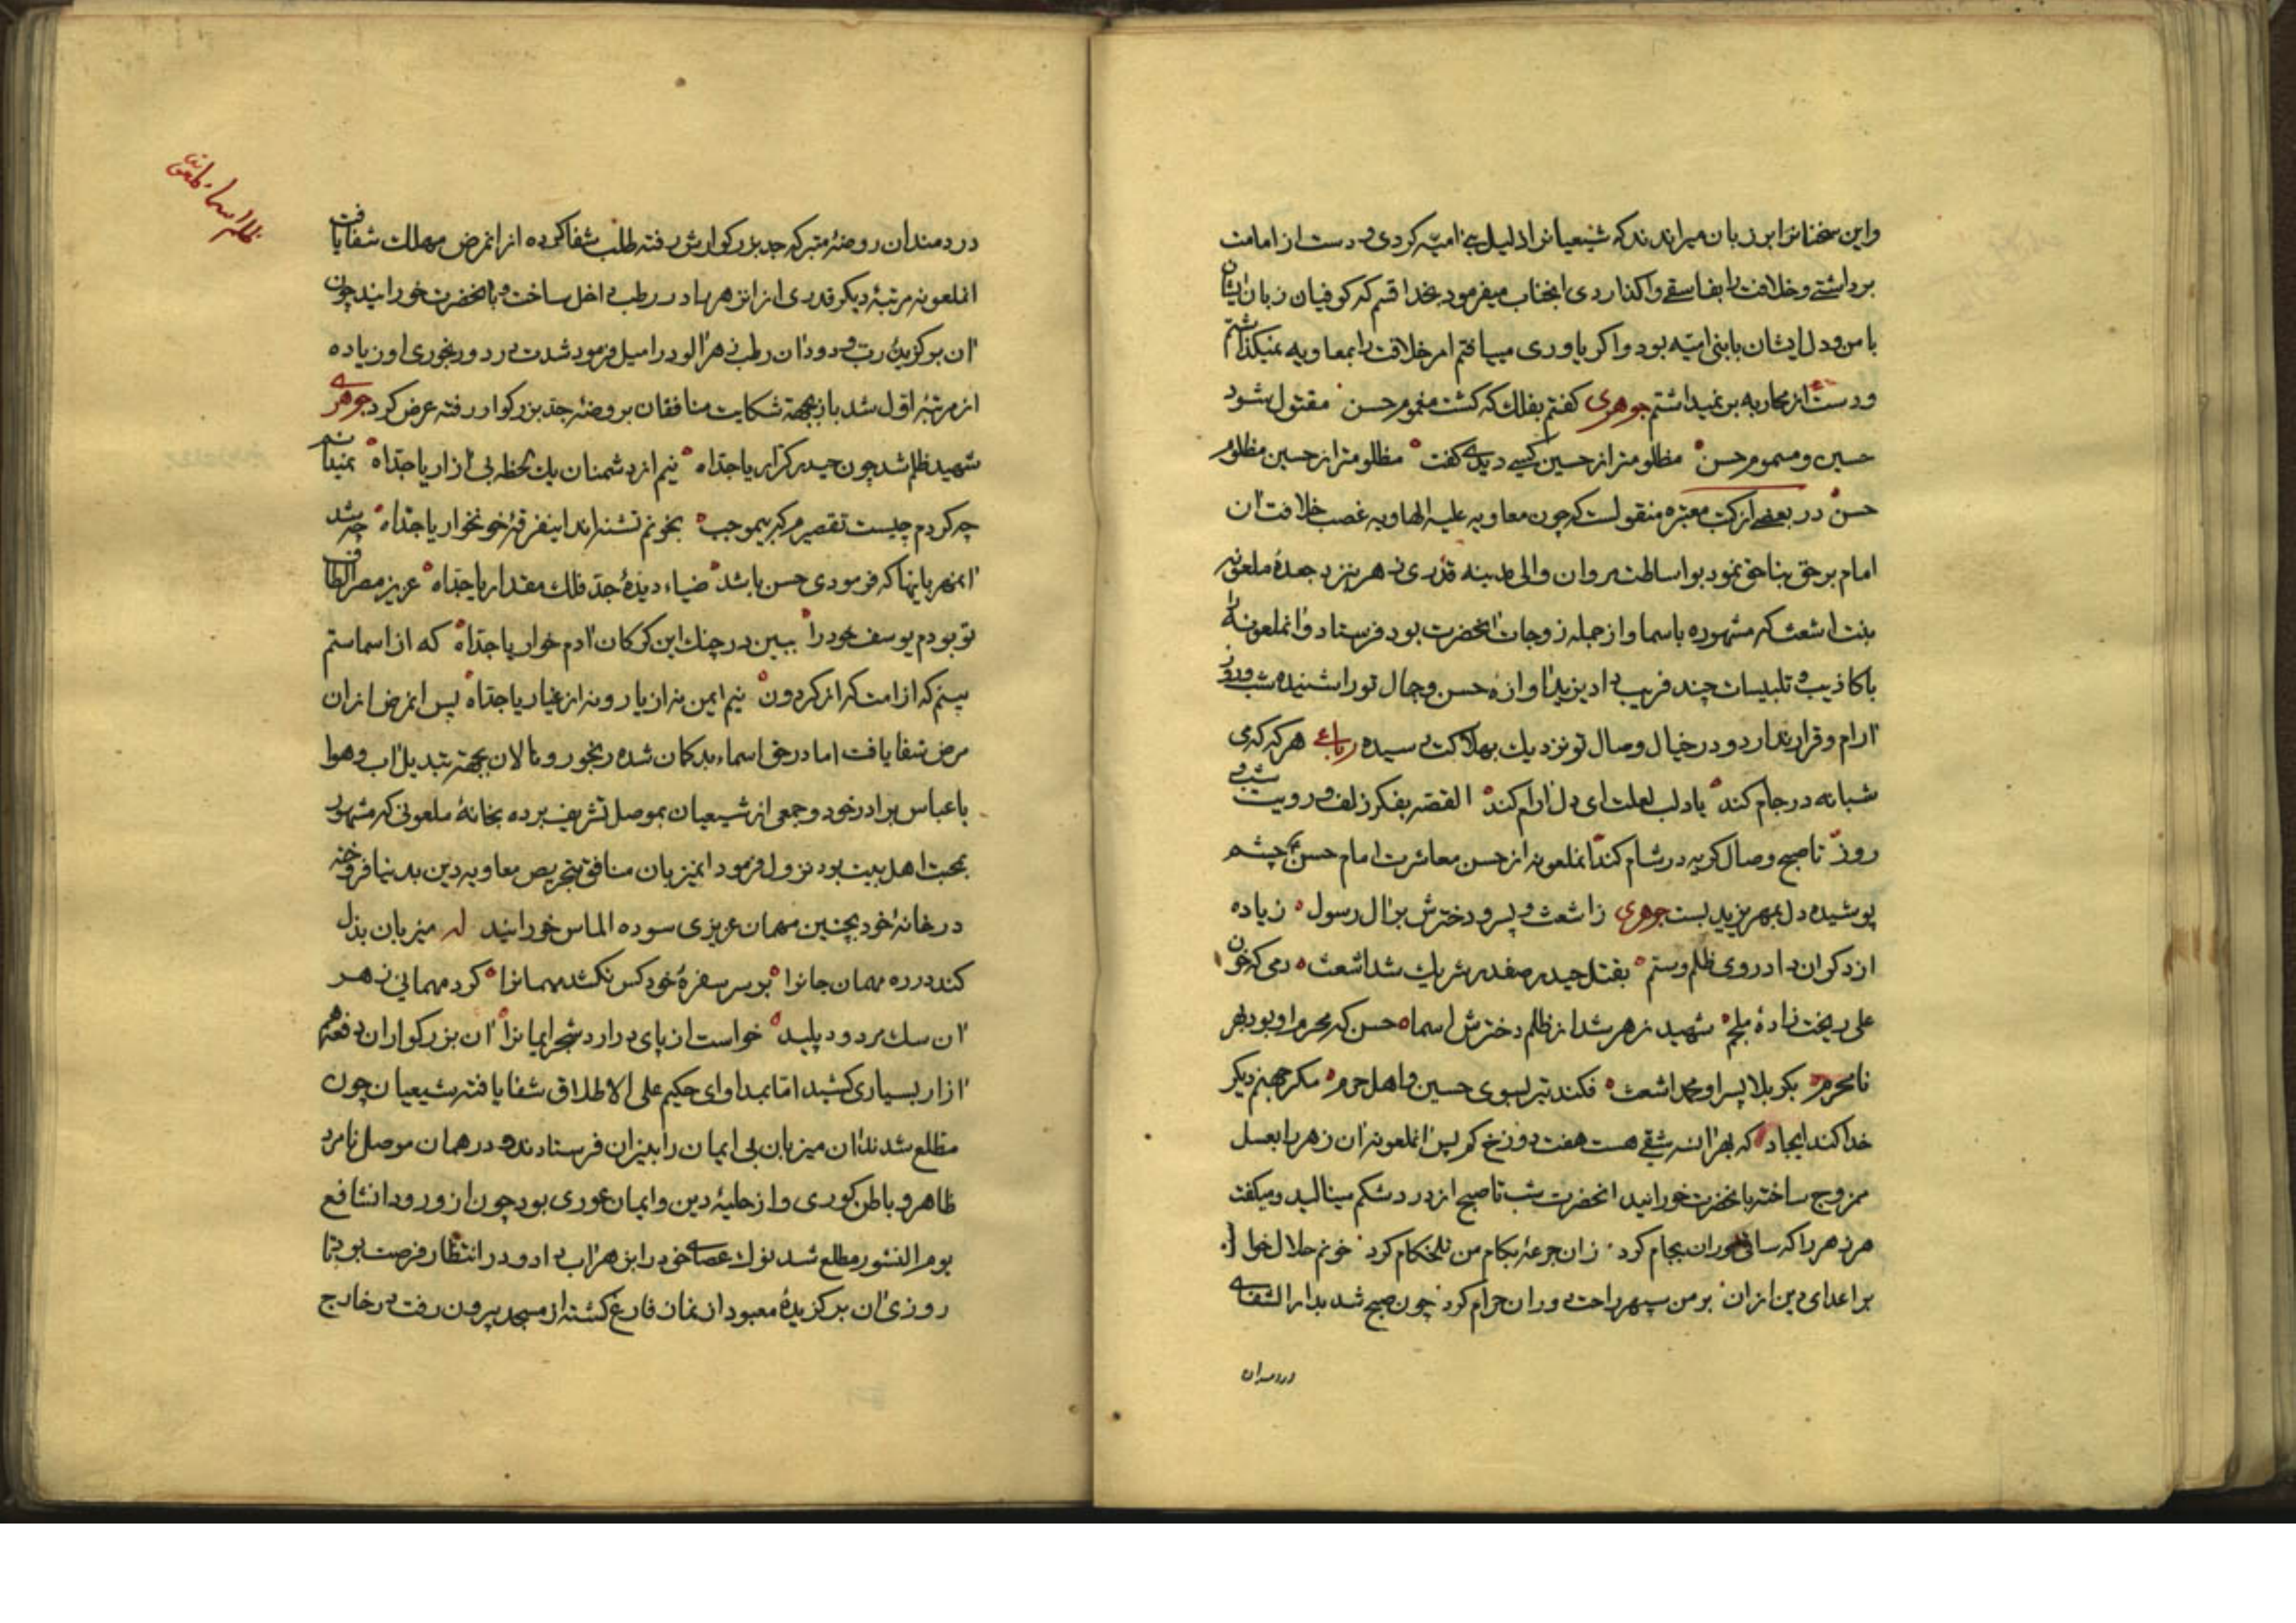 واین سخنانرا بر زبان میراندند که شیعیانرا ذلیل بنی امیه کردی و دست از امامت
برداشتی و خلافت را بفاسقی واکذاردی انجناب میفرمود بخدا قسم که کوفیان زبان ایشان
با من و دل ایشان با بنی امیه بود و اکر یاوری مییافتم امر خلافت را بمعاویه نمیکذاشتم
و دست از محاربه بر نمیداشتم جوهری کفتم بفلک که کشت مغموم حسن مقتول شود
حسین و مسموم حسن مظلومتر از حسین کسی دیدی کفت مظلومتر از حسین مظلوم
حسن در بعضی از کتب معتبره منقولست که چون معاویه علیه الهاویه غصب خلافت ان
امام بر حق بناحق نمود بواساطت مروان والی مدینه قدری زهر بنزد جعدهٔ ملعونه
بنت اشعث که مشهوره باسما و از جمله زوجات انحضرت بود فرستاد و انملعونه را
باکاذیب و تلبیسات چند فریب داد یزید اوازهٔ حسن و جمال تو را شنیده شب و روز
ارام و قرار ندارد و در خیال وصال تو نزدیک بهلاکت رسیده رباعی هر که که می
شبانه در جام کند یاد لب لعلت ای دل ارام کند القصه بفکر زلف و رویت شب و
روز تا صبح وصال کریه در شام کند انملعونه از حسن معاشرت امام حسن چشم
پوشیده دل بمهر یزید بست جوهری ز اشعث و پسر و دخترش بر ال رسول زیاده
از دکران داد روی ظلم و ستم بقتل حیدر صفدر شریک شد اشعث دمی که خون
علی ریخت زادهٔ ملجم شهید زهر شد از ظلم دخترش اسما حسن که محرم او بود بهر
نامحرم بکربلا پسر او محمد اشعث فکند تیر بسوی حسین و اهل حرم مکر جهنم دیکر
خدا کند ایجاد که بهر انسه شقی هست هفت دوزخ کم پس انملعونه ان زهر را بعسل
ممزوج ساخته بانحضرت خورانید انحضرت شب تا صبح از درد شکم مینالید و میکفت
هر زهر را که ساقی دوران بجام کرد زان جرعهٔ بکام من تلخکام کرد خونم حلال خواند
بر اعدای دین ازان بر من سپهر راحت دوران حرام کرد چون صبح شد بدار الشفای
دردمندان
دردمندان روضهٔ متبرکه جد بزرکوارش رفته طلب شفا کرده از انمرض مهلک شفا یافت
انملعونه مرتبهٔ دیکر قدری از انزهر را در رطب داخل ساخت و بانحضرت خورانید چون
ان برکزیدهٔ رب ودود ان رطب زهر الود را میل فرمود شدت درد و رنجوری او زیاده
از مرتبهٔ اول شد باز بجهة شکایت منافقان بروضهٔ جد بزرکوار رفته عرض کرد جوهری
شهید ظلم شد چون حیدر کرار یا جداه نیم از دشمنان یک لحظه بی ازار یا جداه نمیدانم
چه کردم چیست تقصیرم که بیموجب بخونم تشنه اند اینفرقهٔ خونخوار یا جداه چه شد
انمهربانیها که فرمودی حسن باشد ضیاء دیدهٔ جد فلک مقدار یا جداه عزیز مصر الطاف
تو بودم یوسف خود را ببین در چنک این کرکان ادم خوار یا جداه که از اسما ستم
بینم که از امت که از کردون نیم ایمن نه از یار و نه از اغیار یا جداه پس انمرض ازان
مرض شفا یافت اما در حق اسماء بدکمان شده رنجور و نالان بجهة تبدیل اب و هوا
با عباس برادر خود و جمعی از شیعیان بموصل تشریف برده بخانهٔ ملعونی که مشهور
بمحبت اهل بیت بود نزول فرمود انمیزبان منافق بتحریص معاویه دین بدنیا فروخته
در خانهٔ خود بچنین مهمان عزیزی سوده الماس خورانید له میزبان بذل
کند در ره مهمان جانرا بر سر سفرهٔ خود کس نکشد مهمانرا کرد مهمانی زهر
ان سک مردود پلید خواست از پای در ارد شجر ایمانرا ان بزرکوار ان دفعه هم
ازار بسیاری کشید اما بمداوای حکیم علی الاطلاق شفا یافته شیعیان چون
مطلع شدند ان میزبان بی ایمان را بنیران فرستادند و در همان موصل نامرد
ظاهر و باطن کوری و از حلیهٔ دین و ایمان عوری بود چون از ورود انشافع
یوم النشور مطلع شد نوک عصای خود را بزهراب داد و در انتظار فرصت بود تا
روزی ان برکزیدهٔ معبود از نماز فارغ کشته از مسجد بیرون رفت در خارج